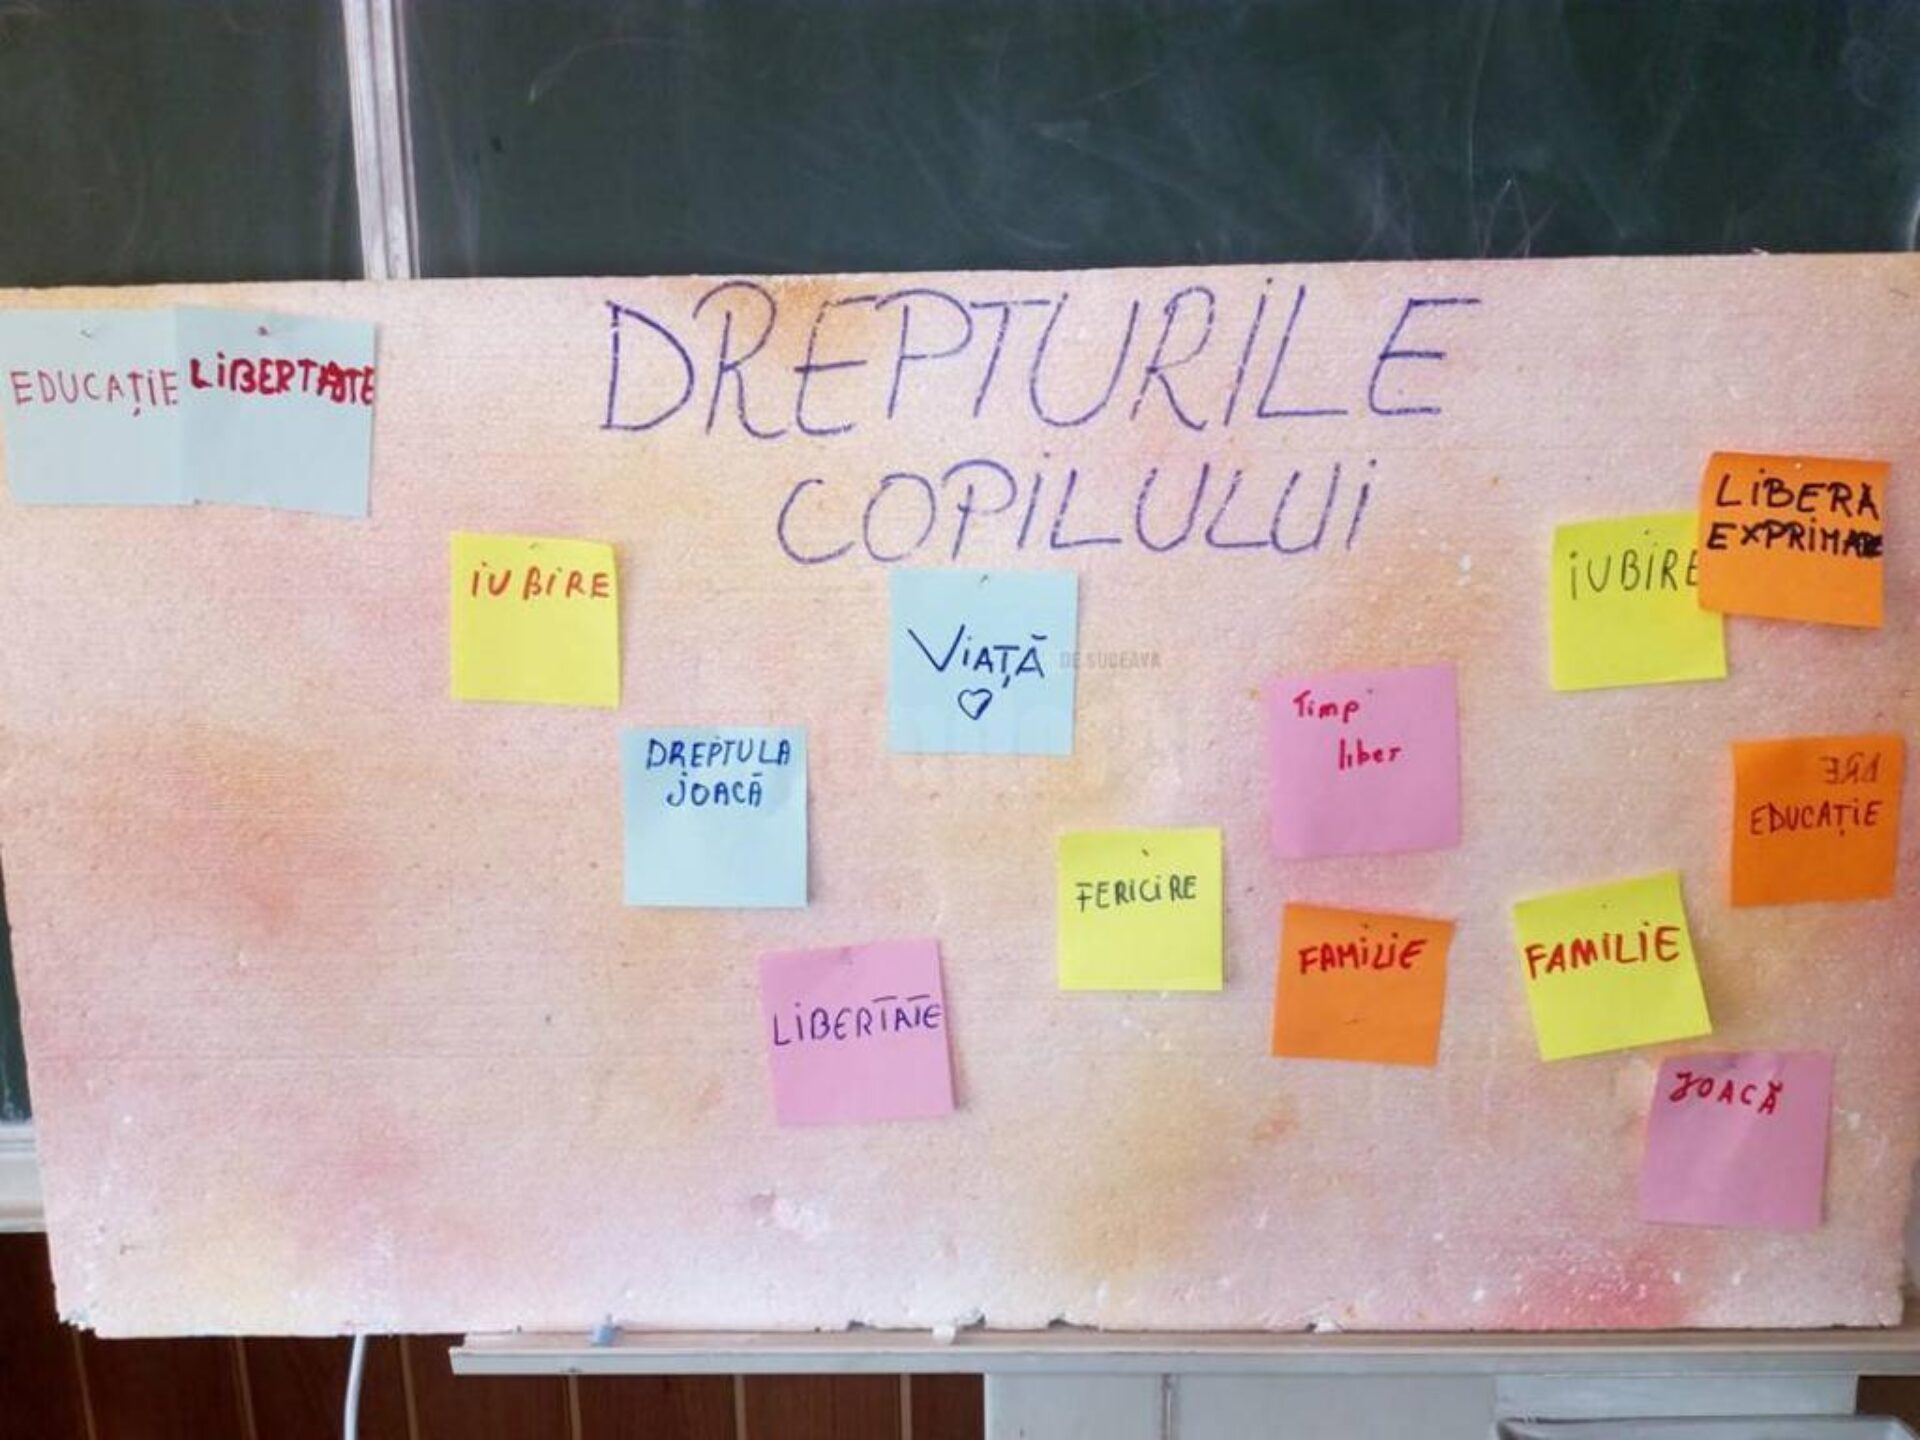 DREPTURILE
COPILULUI
EDUCAȚIE
LIBERTATE
IUBIRE
VIAȚĂ
DREPTUL LA
JOACĂ
LIBERTATE
FERICIRE
Timp
liber
FAMILIE
IUBIRE
LIBERĂ
EXPRIMARE
EDUCAȚIE
FAMILIE
JOACĂ
DE SUCEAVA